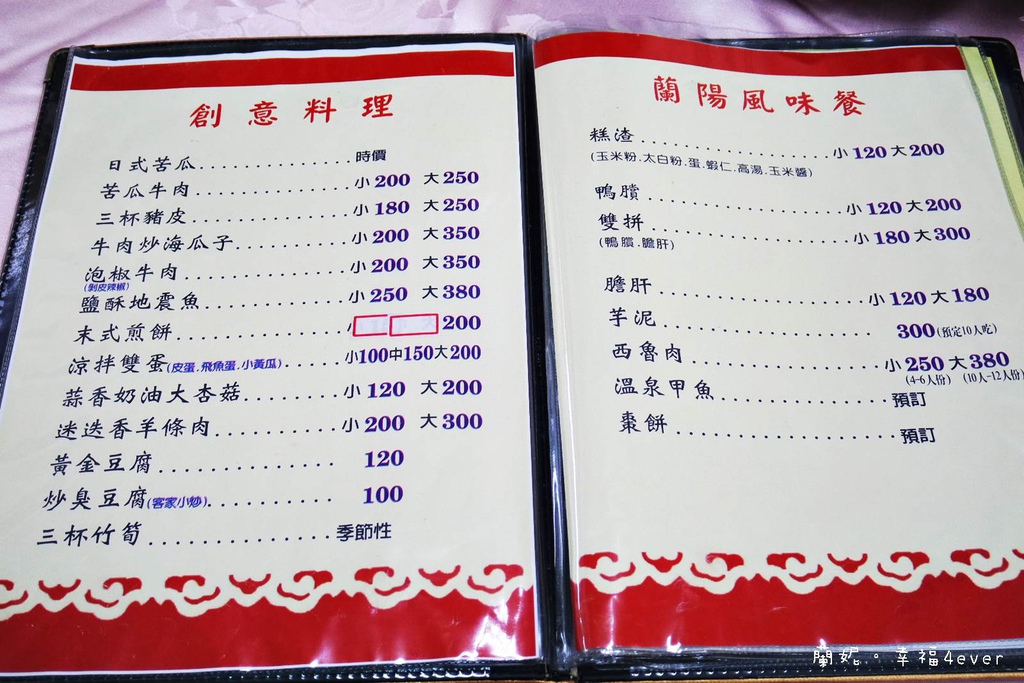 創意料理
日式苦瓜............... 時價
苦瓜牛肉............... 小 200 大 250
三杯豬皮............... 小 180 大 250
牛肉炒海瓜子........... 小 200 大 350
泡椒牛肉............... 小 200 大 350
(剝皮辣椒)
鹽酥地震魚............. 小 250 大 380
末式煎餅............... 200
涼拌雙蛋(皮蛋.飛魚蛋.小黃瓜)...... 小100中150大200
蒜香奶油大杏菇......... 小 120 大 200
迷迭香羊條肉........... 小 200 大 300
黃金豆腐............... 120
炒臭豆腐(客家小炒).......... 100
三杯竹筍............... 季節性
蘭陽風味餐
糕渣................... 小 120 大 200
(玉米粉.太白粉.蛋.蝦仁.高湯.玉米醬)
鴨膭................... 小 120 大 200
雙拼................... 小 180 大 300
(鴨膭.膽肝)
膽肝................... 小 120 大 180
芋泥................... 300(預定10人吃)
西魯肉................. 小 250 大 380
(4-6人份) (10人-12人份)
溫泉甲魚............... 預訂
棗餅................... 預訂
蘭妮。幸福4ever